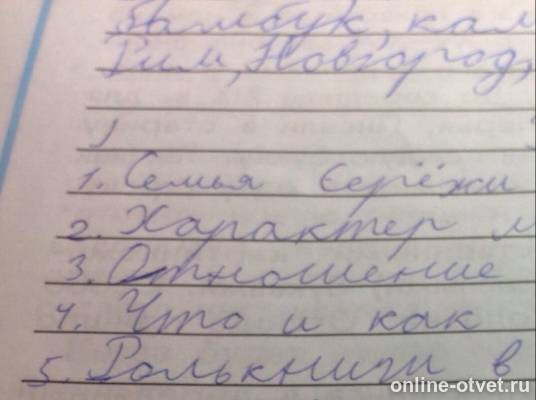 Бамбук, кам
Рим, Новгород,
1. Семья Серёжи
2. Характер м
3. Отношение
4. Что и как
5. Роль книги в
online-otvet.ru